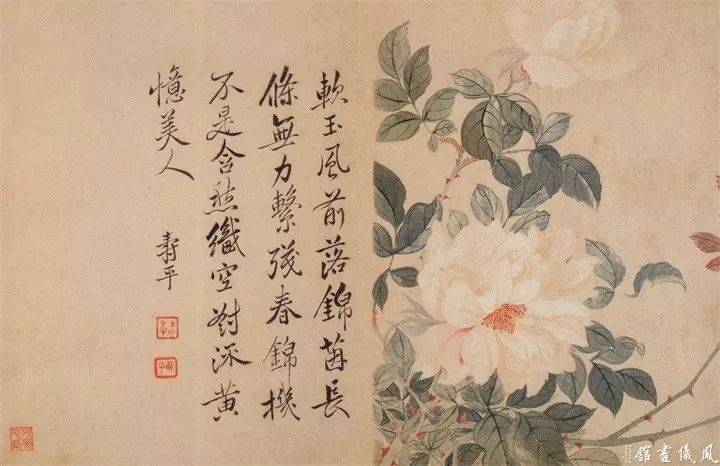 軟玉風前落錦茵長
條無力繫殘春錦機
不是含愁織空對流黃
憶美人
壽平
風儀畫館